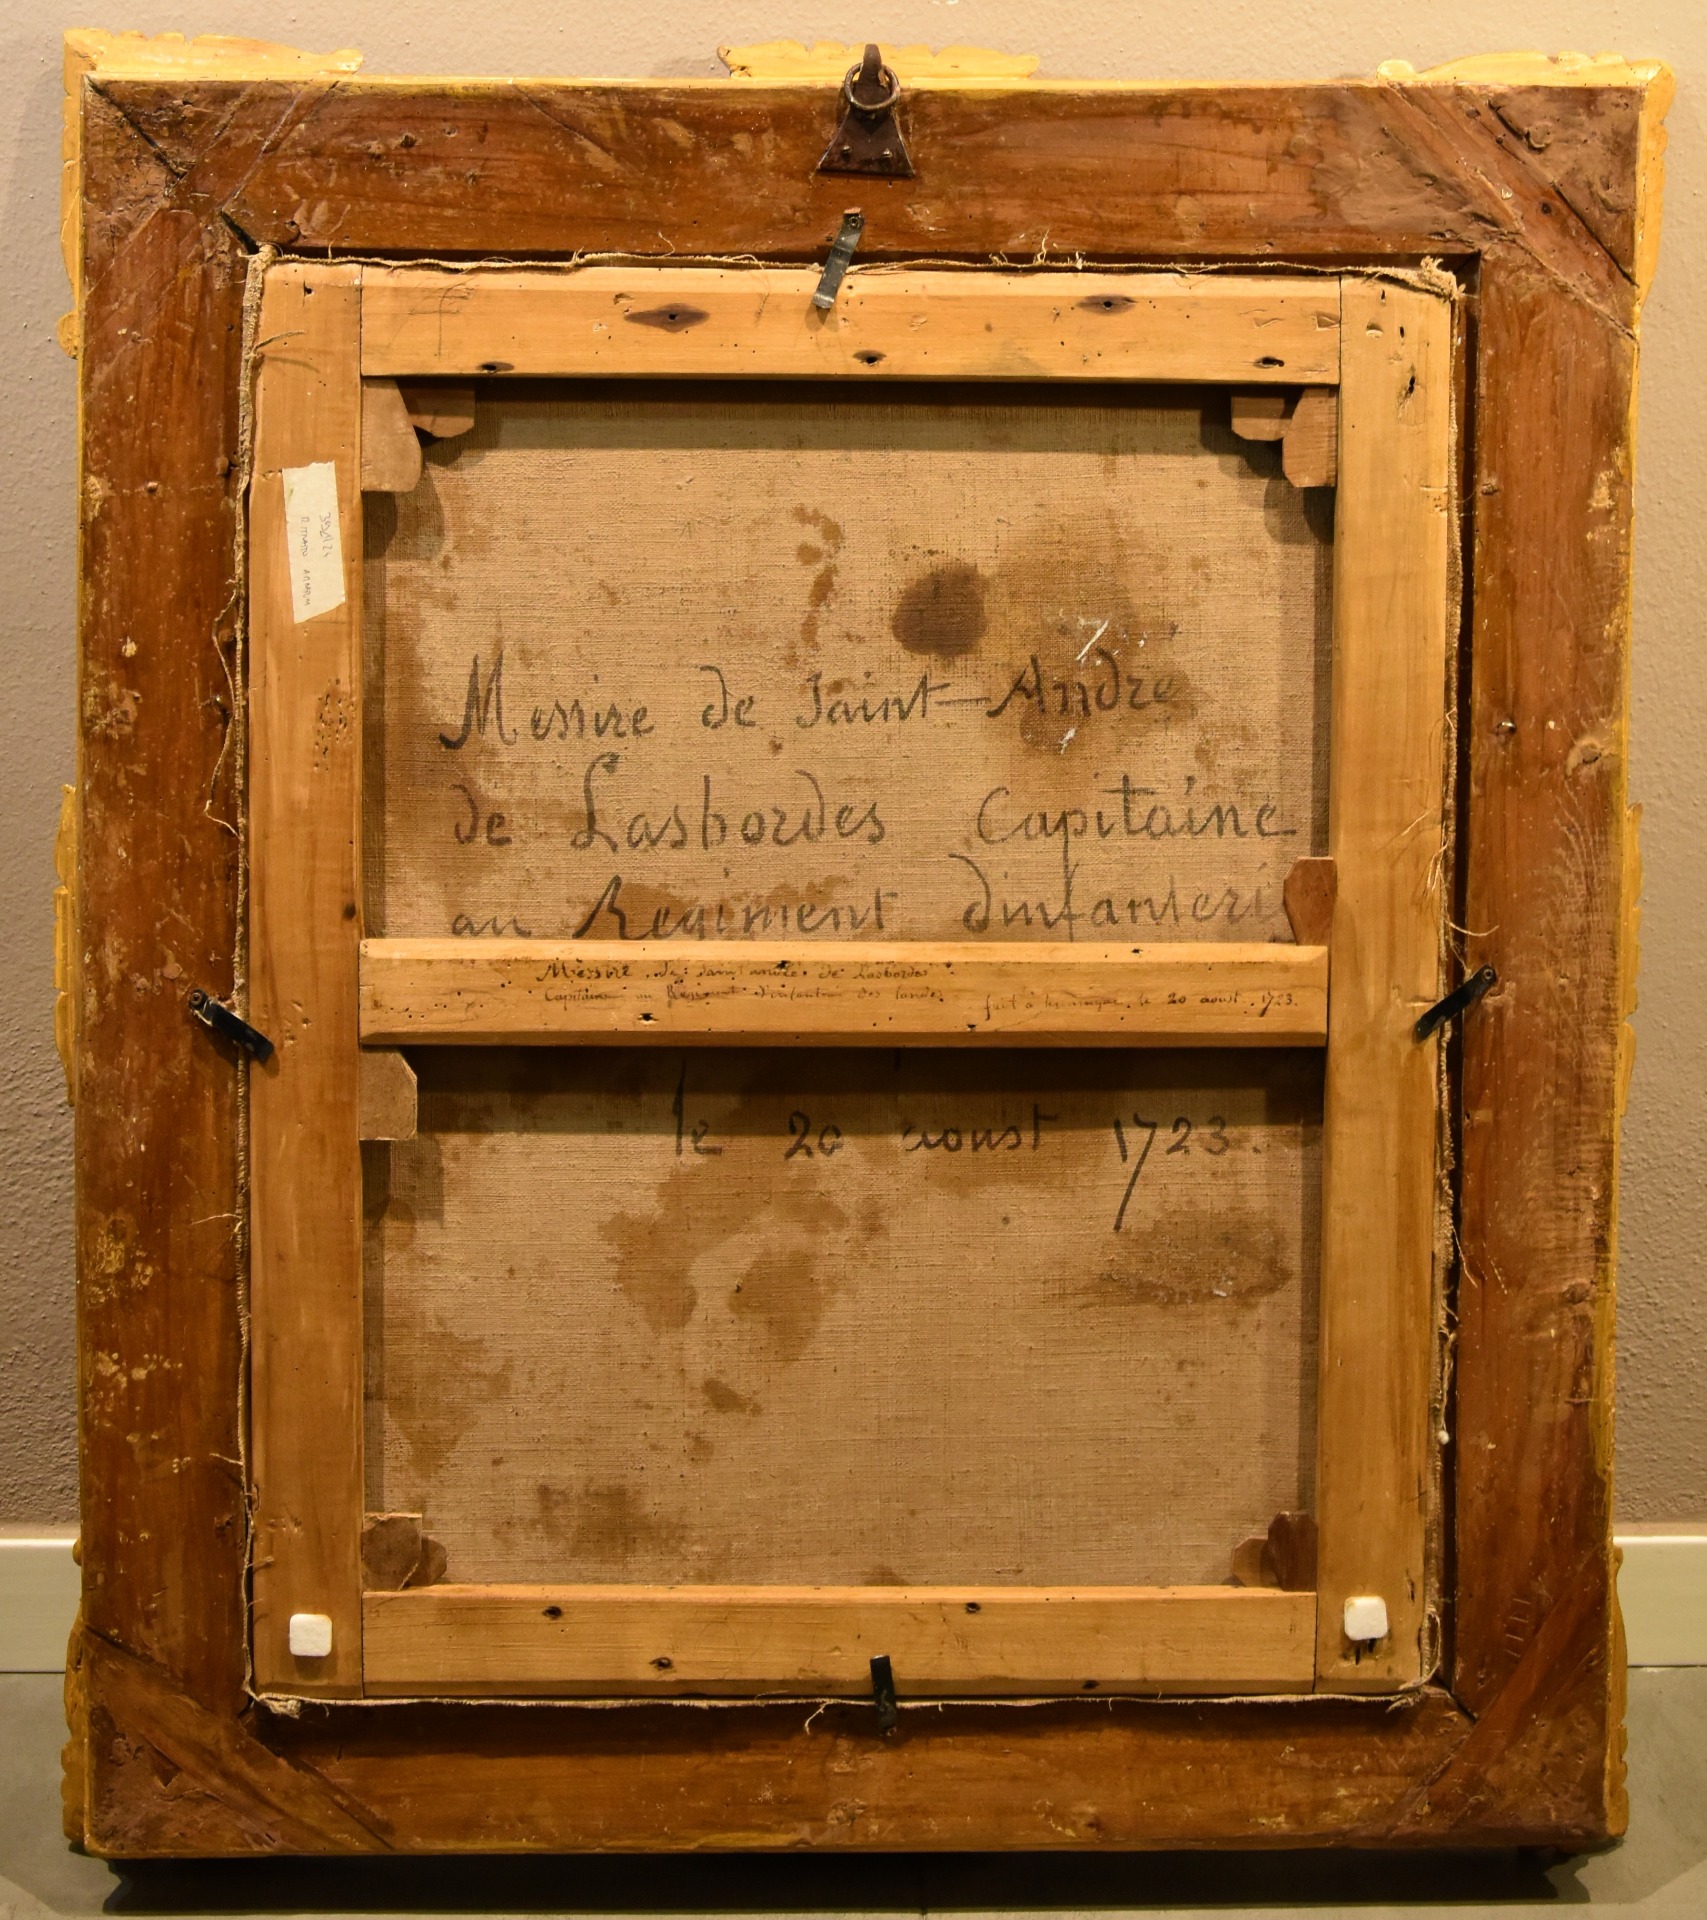 Messire de Saint-Andre
de Lasbordes Capitaine
au Regiment dinfanteri
Messire de Saint andré de Lasbordes
Capitaine au Regiment d'infanterie des landes fait à le 20 aoust 1723.
le 20 aoust 1723.